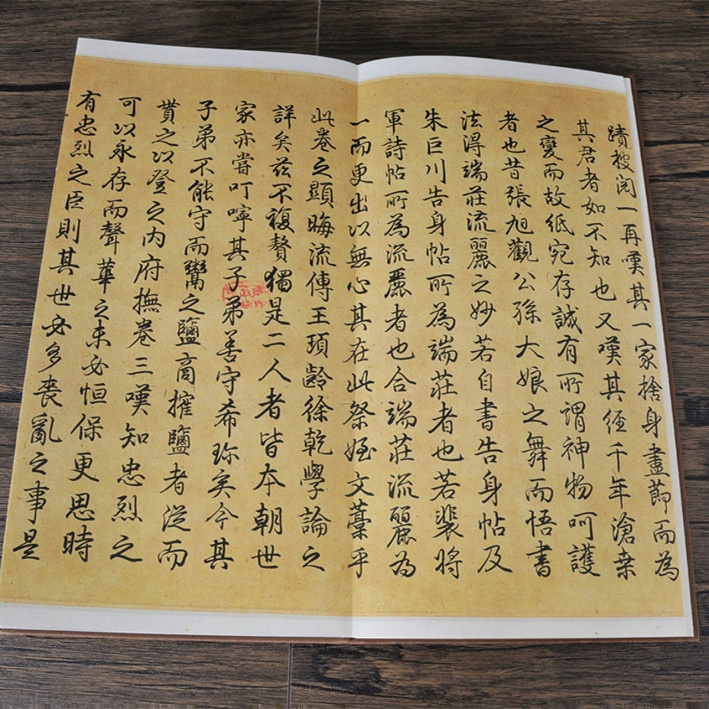 蹟披閱一再嘆其一家捨身盡節而為
其君者如不知也又嘆其經千年滄桑
之變而故紙宛存誠有所謂神物呵護
者也昔張旭觀公孫大娘之舞而悟書
法得端莊流麗之妙若自書告身帖及
朱巨川告身帖所為端莊者也若裴將
軍詩帖所為流麗者也合端莊流麗為
一而更出以無心其在此祭姪文藁乎
此卷之顯晦流傳王頊齡徐乾學論之
詳矣茲不複贅獨是二人者皆本朝世
家亦嘗叮嚀其子弟善守希珍矣今其
子弟不能守而鬻之鹽商㩁鹽者從而
貰之以登之內府撫卷三嘆知忠烈之
可以永存而聲華之未必恒保更思時
有忠烈之臣則其世必多喪亂之事是